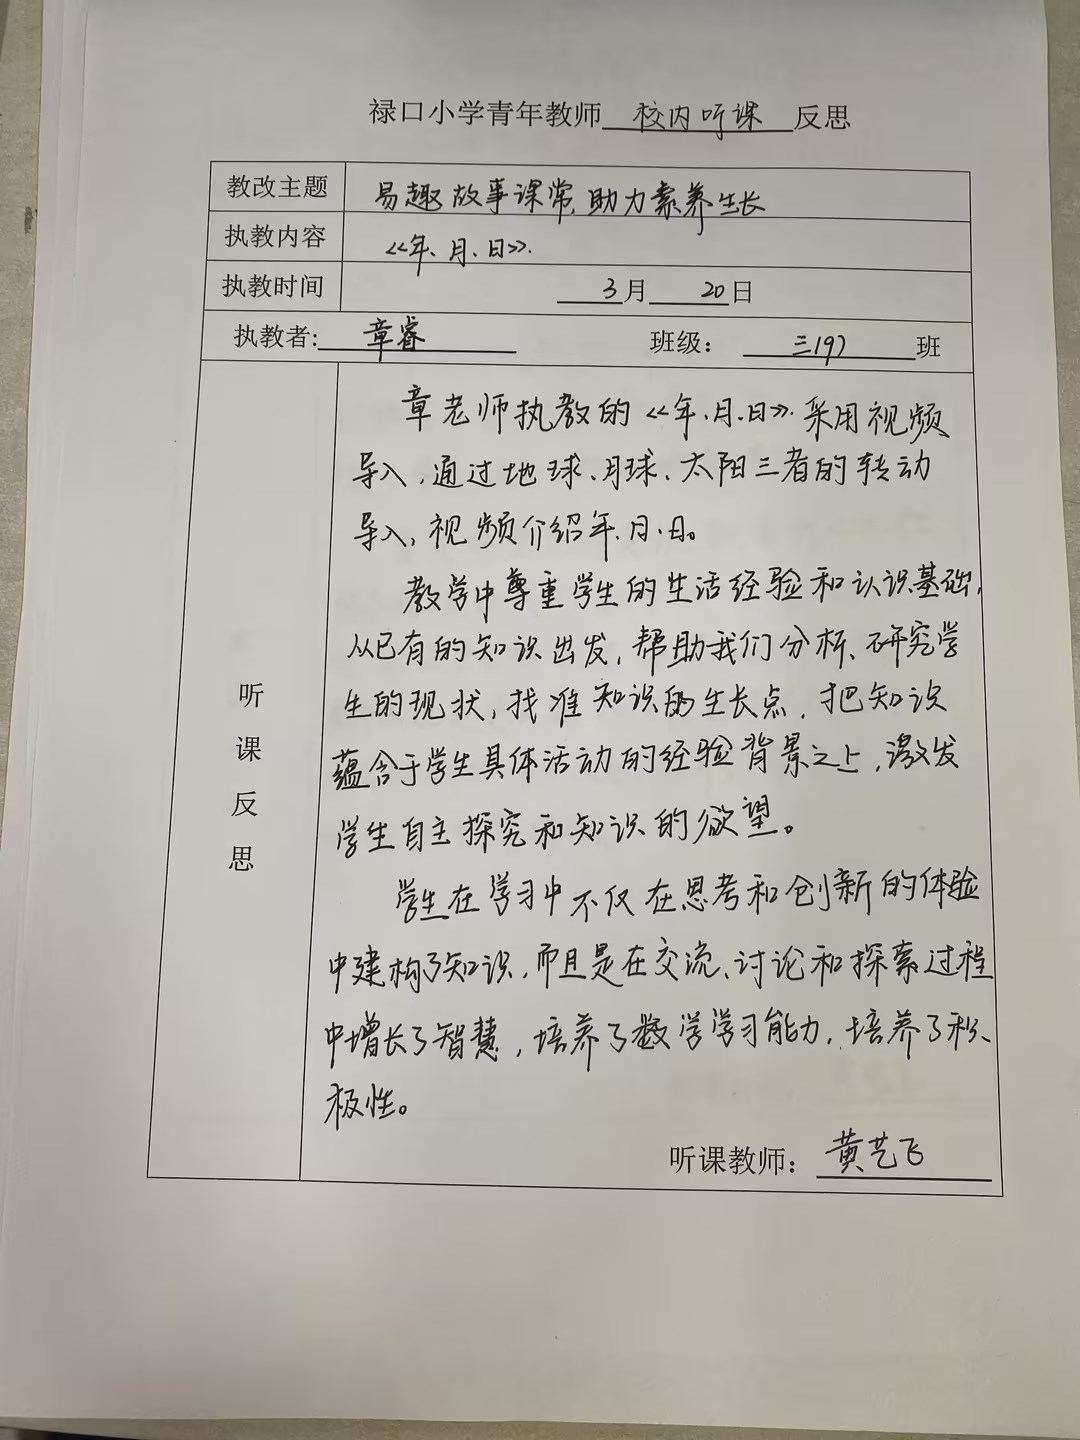 禄口小学青年教师 校内听课 反思
教改主题 易趣故事课常,助力素养生长
执教内容 《年、月、日》.
执教时间 3月 20日
执教者: 章睿 班级: 三(9) 班
听课反思
章老师执教的《年、月、日》采用视频
导入,通过地球、月球、太阳三者的转动
导入,视频介绍年、月、日。
教学中尊重学生的生活经验和认识基础,
从已有的知识出发,帮助我们分析、研究学
生的现状,找准知识的生长点,把知识
蕴含于学生具体活动的经验背景之上,激发
学生自主探究和知识的欲望。
学生在学习中不仅在思考和创新的体验
中建构了知识,而且是在交流、讨论和探索过程
中增长了智慧,培养了数学学习能力,培养了积
极性。
听课教师: 黄艺飞